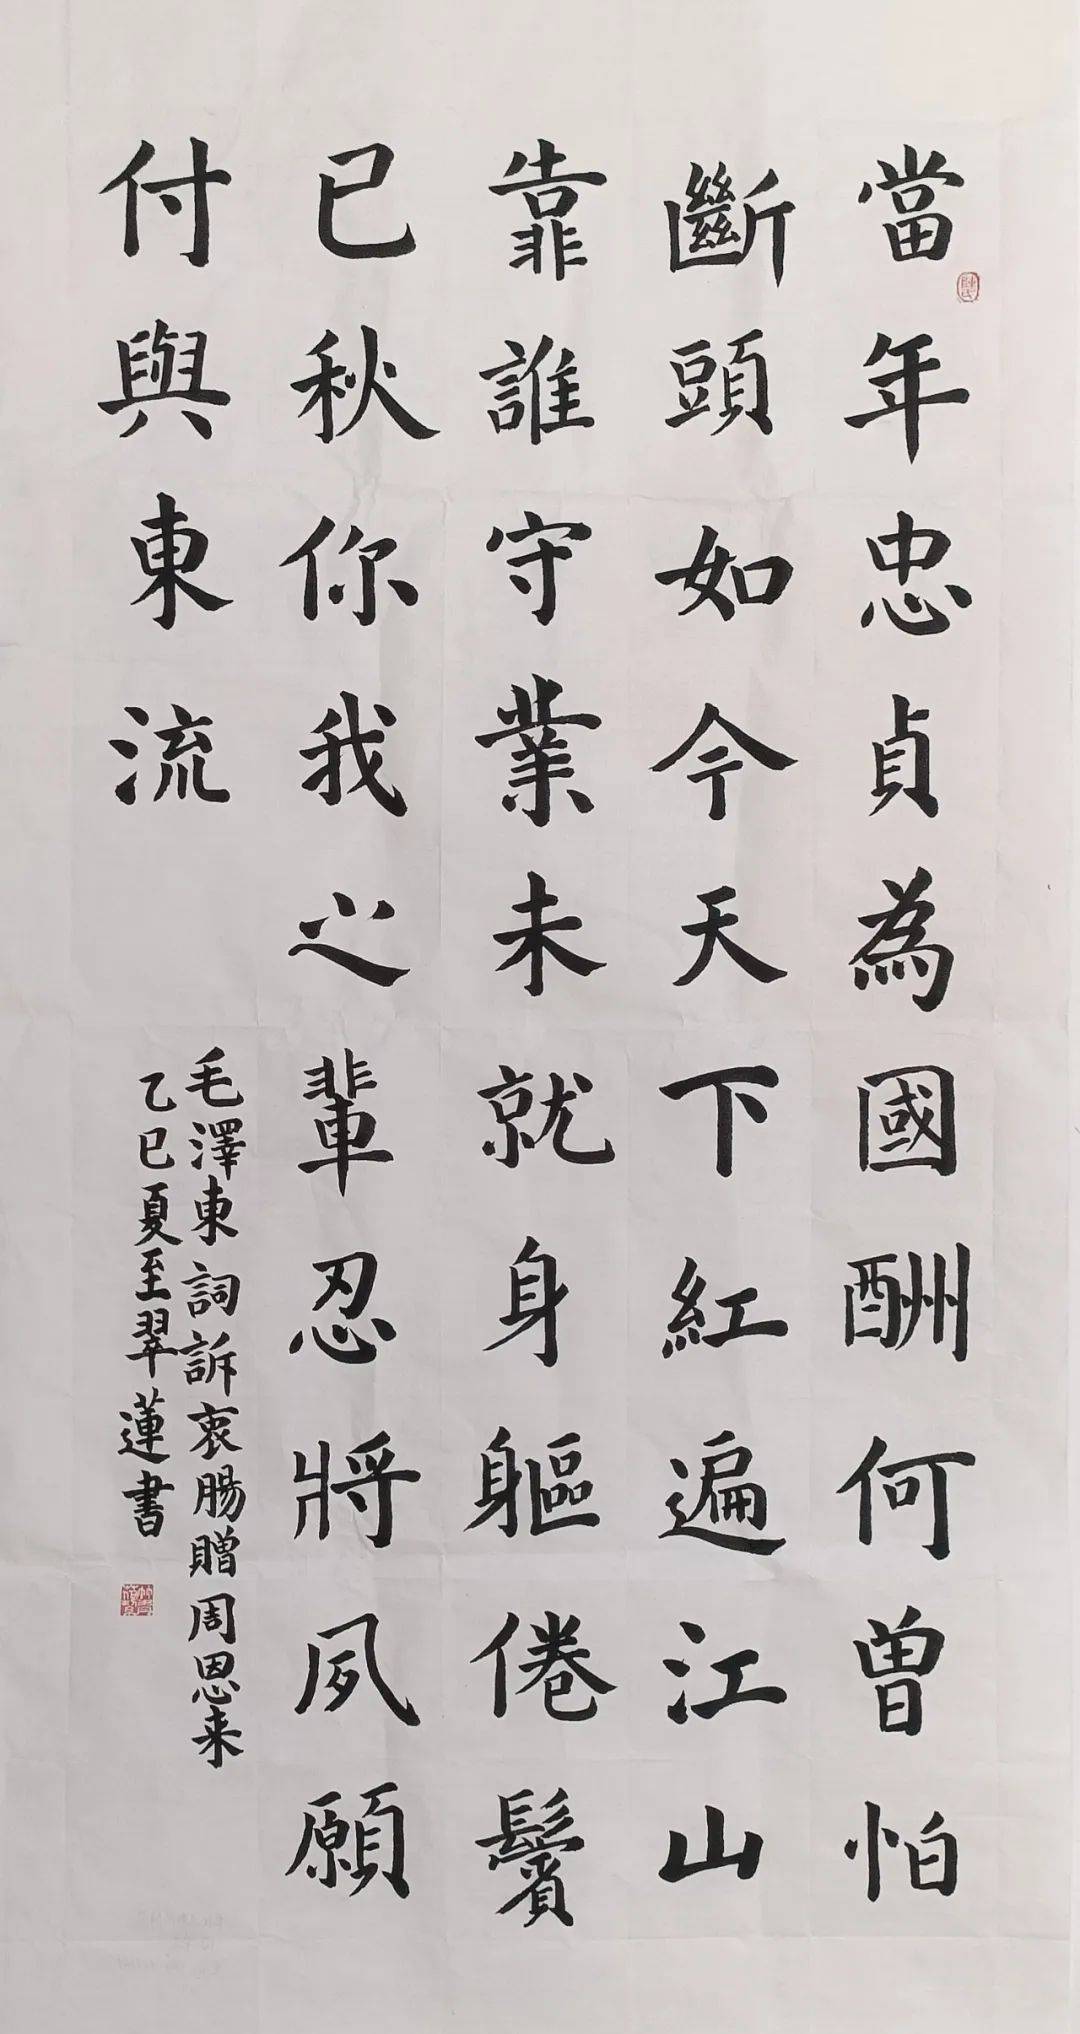 當年忠貞為國酬何曾怕
斷頭如今天下紅遍江山
靠誰守業未就身軀倦鬢
已秋你我之輩忍將夙願
付與東流
毛澤東詞訴衷腸贈周恩来
乙巳夏至翠蓮書